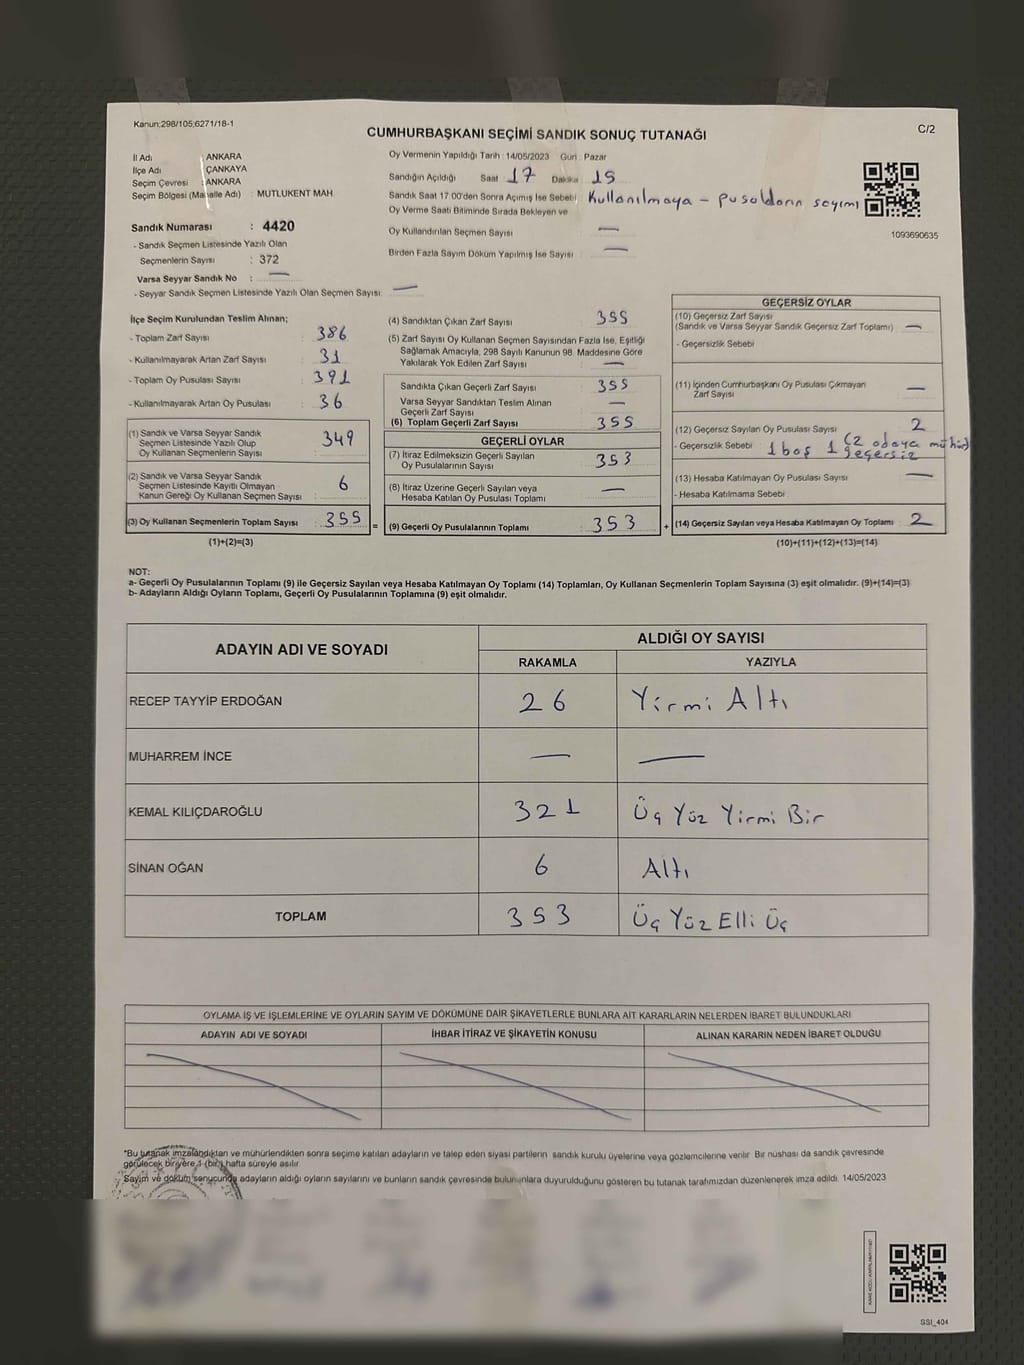 Kanun;298/105;6271/18-1
C/2
CUMHURBAŞKANI SEÇİMİ SANDIK SONUÇ TUTANAĞI
İl Adı : ANKARA
İlçe Adı : ÇANKAYA
Seçim Çevresi : ANKARA
Seçim Bölgesi (Mahalle Adı) : MUTLUKENT MAH.
Sandık Numarası : 4420
- Sandık Seçmen Listesinde Yazılı Olan
Seçmenlerin Sayısı : 372
Varsa Seyyar Sandık No : —
- Seyyar Sandık Seçmen Listesinde Yazılı Olan Seçmen Sayısı: —
Oy Vermenin Yapıldığı Tarih : 14/05/2023 Gün : Pazar
Sandığın Açıldığı Saat 17 Dakika 15
Sandık Saat 17:00'den Sonra Açımış İse Sebebi Kullanılmaya - pusulaların sayımı
Oy Verme Saati Bitiminde Sırada Bekleyen ve
Oy Kullandırılan Seçmen Sayısı : —
Birden Fazla Sayım Döküm Yapılmış İse Sayısı : —
1093690635
İlçe Seçim Kurulundan Teslim Alınan;
- Toplam Zarf Sayısı : 386
- Kullanılmayarak Artan Zarf Sayısı : 31
- Toplam Oy Pusulası Sayısı : 391
- Kullanılmayarak Artan Oy Pusulası : 36
(1) Sandık ve Varsa Seyyar Sandık
Seçmen Listesinde Yazılı Olup
Oy Kullanan Seçmenlerin Sayısı : 349
(2) Sandık ve Varsa Seyyar Sandık
Seçmen Listesinde Kayıtlı Olmayan
Kanun Gereği Oy Kullanan Seçmen Sayısı : 6
(3) Oy Kullanan Seçmenlerin Toplam Sayısı : 355 =
(1)+(2)=(3)
(4) Sandıktan Çıkan Zarf Sayısı : 355
(5) Zarf Sayısı Oy Kullanan Seçmen Sayısından Fazla İse, Eşitliği
Sağlamak Amacıyla, 298 Sayılı Kanunun 98. Maddesine Göre
Yakılarak Yok Edilen Zarf Sayısı : —
Sandıkta Çıkan Geçerli Zarf Sayısı : 355
Varsa Seyyar Sandıktan Teslim Alınan
Geçerli Zarf Sayısı : —
(6) Toplam Geçerli Zarf Sayısı : 355
GEÇERLİ OYLAR
(7) İtiraz Edilmeksizin Geçerli Sayılan
Oy Pusulalarının Sayısı : 353
(8) İtiraz Üzerine Geçerli Sayılan veya
Hesaba Katılan Oy Pusulası Toplamı : —
(9) Geçerli Oy Pusulalarının Toplamı : 353 +
GEÇERSİZ OYLAR
(10) Geçersiz Zarf Sayısı
(Sandık ve Varsa Seyyar Sandık Geçersiz Zarf Toplamı) : —
- Geçersizlik Sebebi
(11) İçinden Cumhurbaşkanı Oy Pusulası Çıkmayan
Zarf Sayısı : —
(12) Geçersiz Sayılan Oy Pusulası Sayısı : 2
- Geçersizlik Sebebi 1 boş 1 geçersiz (2 adaya mühür)
(13) Hesaba Katılmayan Oy Pusulası Sayısı : —
- Hesaba Katılmama Sebebi
(14) Geçersiz Sayılan veya Hesaba Katılmayan Oy Toplamı : 2
(10)+(11)+(12)+(13)=(14)
NOT:
a- Geçerli Oy Pusulalarının Toplamı (9) ile Geçersiz Sayılan veya Hesaba Katılmayan Oy Toplamı (14) Toplamları, Oy Kullanan Seçmenlerin Toplam Sayısına (3) eşit olmalıdır. (9)+(14)=(3)
b- Adayların Aldığı Oyların Toplamı, Geçerli Oy Pusulalarının Toplamına (9) eşit olmalıdır.
ADAYIN ADI VE SOYADI ALDIĞI OY SAYISI
RAKAMLA YAZIYLA
RECEP TAYYİP ERDOĞAN 26 Yirmi Altı
MUHARREM İNCE — —
KEMAL KILIÇDAROĞLU 321 Üç Yüz Yirmi Bir
SİNAN OĞAN 6 Altı
TOPLAM 353 Üç Yüz Elli Üç
OYLAMA İŞ VE İŞLEMLERİNE VE OYLARIN SAYIM VE DÖKÜMÜNE DAİR ŞİKAYETLERLE BUNLARA AİT KARARLARIN NELERDEN İBARET BULUNDUKLARI
ADAYIN ADI VE SOYADI İHBAR İTİRAZ VE ŞİKAYETİN KONUSU ALINAN KARARIN NEDEN İBARET OLDUĞU
*Bu tutanak imzalandıktan ve mühürlendikten sonra seçime katılan adayların ve talep eden siyasi partilerin sandık kurulu üyelerine veya gözlemcilerine verilir. Bir nüshası da sandık çevresinde
görülecek bir yere 1 (bir) hafta süreyle asılır.
Sayım ve döküm sonucunda adayların aldığı oyların sayılarını ve bunların sandık çevresinde bulunanlara duyurulduğunu gösteren bu tutanak tarafımızdan düzenlenerek imza edildi. 14/05/2023
SSI_404